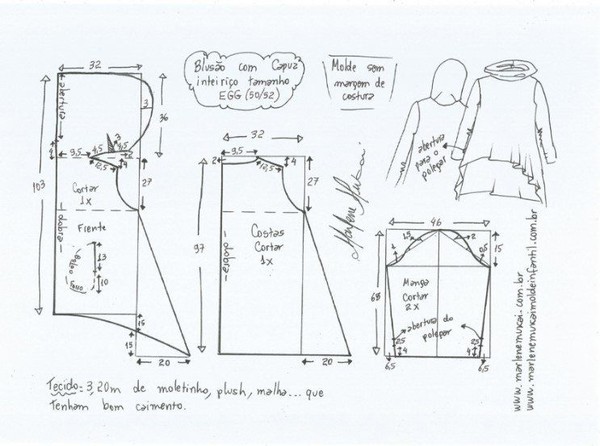 32
Blusão com Capuz
inteiriço tamanho
EGG (50/52)
Molde sem
margem de
costura
abertura
3
36
3
9,5
4,5
4,5
2
4
12,5
4
103
27
Cortar
1x
Frente
dobra
Bolso
13
Fundo
10
15
15
20
32
2
9,5
4
12,5
27
97
dobra
Costas
Cortar
1x
20
Marlene Mukai
abertura
para o
polegar
46
15
4
1,5
2
0,5
68
Manga
Cortar
2x
abertura do
polegar
2,5
4
2,5
4
6,5
6,5
www.marlenemukai.com.br
www.marlenemukaimoldeinfantil.com.br
Tecido: 3,20m de moletinho, plush, malha... que
Tenham bom caimento.